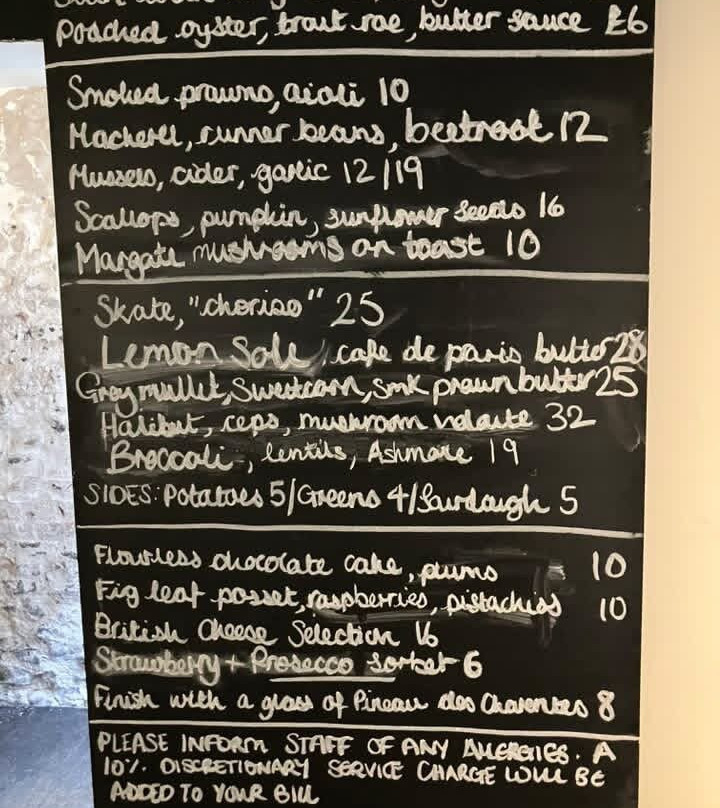 Poached oyster, trout roe, butter sauce £6
Smoked prawns, aioli 10
Mackerel, runner beans, beetroot 12
Mussels, cider, garlic 12/19
Scallops, pumpkin, sunflower seeds 16
Margate mushrooms on toast 10
Skate, "choriso" 25
Lemon Sole, cafe de paris butter 28
Grey mullet, Sweetcorn, smk prawn butter 25
Halibut, ceps, mushroom veloute 32
Broccoli, lentils, Ashmore 19
SIDES: Potatoes 5/Greens 4/Sourdough 5
Flourless chocolate cake, plums 10
Fig leaf posset, raspberries, pistachios 10
British Cheese Selection 16
Strawberry + Prosecco sorbet 6
Finish with a glass of Pineau des Charentes 8
PLEASE INFORM STAFF OF ANY ALLERGIES. A
10% DISCRETIONARY SERVICE CHARGE WILL BE
ADDED TO YOUR BILL